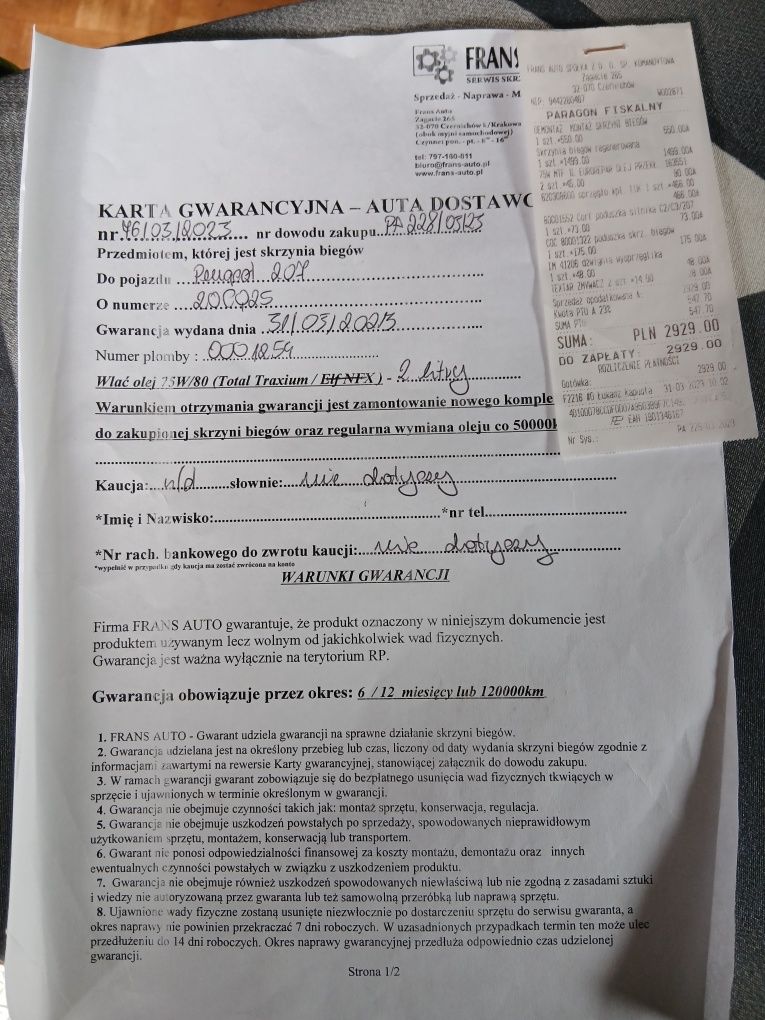 FRANS
SERWIS SKRZ
Sprzedaż - Naprawa - M
Frans Auto
Zagacie 265
32-070 Czernichów k/Krakowa
(obok myjni samochodowej)
Czynne: pon. - pt. - 8°° - 16°°
tel: 797-100-811
biuro@frans-auto.pl
www.frans-auto.pl
KARTA GWARANCYJNA – AUTA DOSTAWC
nr 76/03/2023 nr dowodu zakupu PA 228/03/23
Przedmiotem, której jest skrzynia biegów
Do pojazdu Peugeot 207
O numerze 20CQ25
Gwarancja wydana dnia 31/03/2023
Numer plomby : 0001254
Wlać olej 75W/80 (Total Traxium / Elf NFX ) - 2 litry
Warunkiem otrzymania gwarancji jest zamontowanie nowego komple
do zakupionej skrzyni biegów oraz regularna wymiana oleju co 50000k
Kaucja: n/d słownie: nie dotyczy
*Imię i Nazwisko: *nr tel.
*Nr rach. bankowego do zwrotu kaucji: nie dotyczy
*wypełnić w przypadku gdy kaucja ma zostać zwrócona na konto
WARUNKI GWARANCJI
Firma FRANS AUTO gwarantuje, że produkt oznaczony w niniejszym dokumencie jest
produktem używanym lecz wolnym od jakichkolwiek wad fizycznych.
Gwarancja jest ważna wyłącznie na terytorium RP.
Gwarancja obowiązuje przez okres: 6 / 12 miesięcy lub 120000km
1. FRANS AUTO - Gwarant udziela gwarancji na sprawne działanie skrzyni biegów.
2. Gwarancja udzielana jest na określony przebieg lub czas, liczony od daty wydania skrzyni biegów zgodnie z
informacjami zawartymi na rewersie Karty gwarancyjnej, stanowiącej załącznik do dowodu zakupu.
3. W ramach gwarancji gwarant zobowiązuje się do bezpłatnego usunięcia wad fizycznych tkwiących w
sprzęcie i ujawnionych w terminie określonym w gwarancji.
4. Gwarancja nie obejmuje czynności takich jak: montaż sprzętu, konserwacja, regulacja.
5. Gwarancja nie obejmuje uszkodzeń powstałych po sprzedaży, spowodowanych nieprawidłowym
użytkowaniem sprzętu, montażem, konserwacją lub transportem.
6. Gwarant nie ponosi odpowiedzialności finansowej za koszty montażu, demontażu oraz innych
ewentualnych czynności powstałych w związku z uszkodzeniem produktu.
7. Gwarancja nie obejmuje również uszkodzeń spowodowanych niewłaściwą lub nie zgodną z zasadami sztuki
i wiedzy nie autoryzowaną przez gwaranta lub też samowolną przeróbką lub naprawą sprzętu.
8. Ujawnione wady fizyczne zostaną usunięte niezwłocznie po dostarczeniu sprzętu do serwisu gwaranta, a
okres naprawy nie powinien przekraczać 7 dni roboczych. W uzasadnionych przypadkach termin ten może ulec
przedłużeniu do 14 dni roboczych. Okres naprawy gwarancyjnej przedłuża odpowiednio czas udzielonej
gwarancji.
Strona 1/2
FRANS AUTO SPÓŁKA Z O. O. SP. KOMANDYTOWA
Zagacie 265
32-070 Czernichów
NIP: 9442260467 W002671
PARAGON FISKALNY
DEMONTAŻ MONTAŻ SKRZYNI BIEGÓW
1 szt. *550.00 550.00A
Skrzynia biegów regenerowana
1 szt. *1499.00 1499.00A
75W MTF II EUROREPAR OLEJ PRZEK.
2 szt. *45.00 90.00A
620308600 sprzęgło kpl. LUK 1 szt. *466.00
466.00A
80001552 Cort poduszka silnika C2/C3/207
1 szt. *73.00 73.00A
COC 80001322 poduszka skrz. biegów
1 szt. *175.00 175.00A
1 szt. *48.00 48.00A
TEXTAR ZMYWACZ 2 szt *14.00
Sprzedaż opodatkowana A 2929.00
Kwota PTU A 23% 547.70
SUMA PTU 547.70
SUMA: PLN 2929.00
DO ZAPŁATY: 2929.00
ROZLICZENIE PŁATNOŚCI
Gotówka: 2929.00
F2216 #6 Łukasz Kapusta 31-03-2023
EAH 1901346167
Nr Sys.: